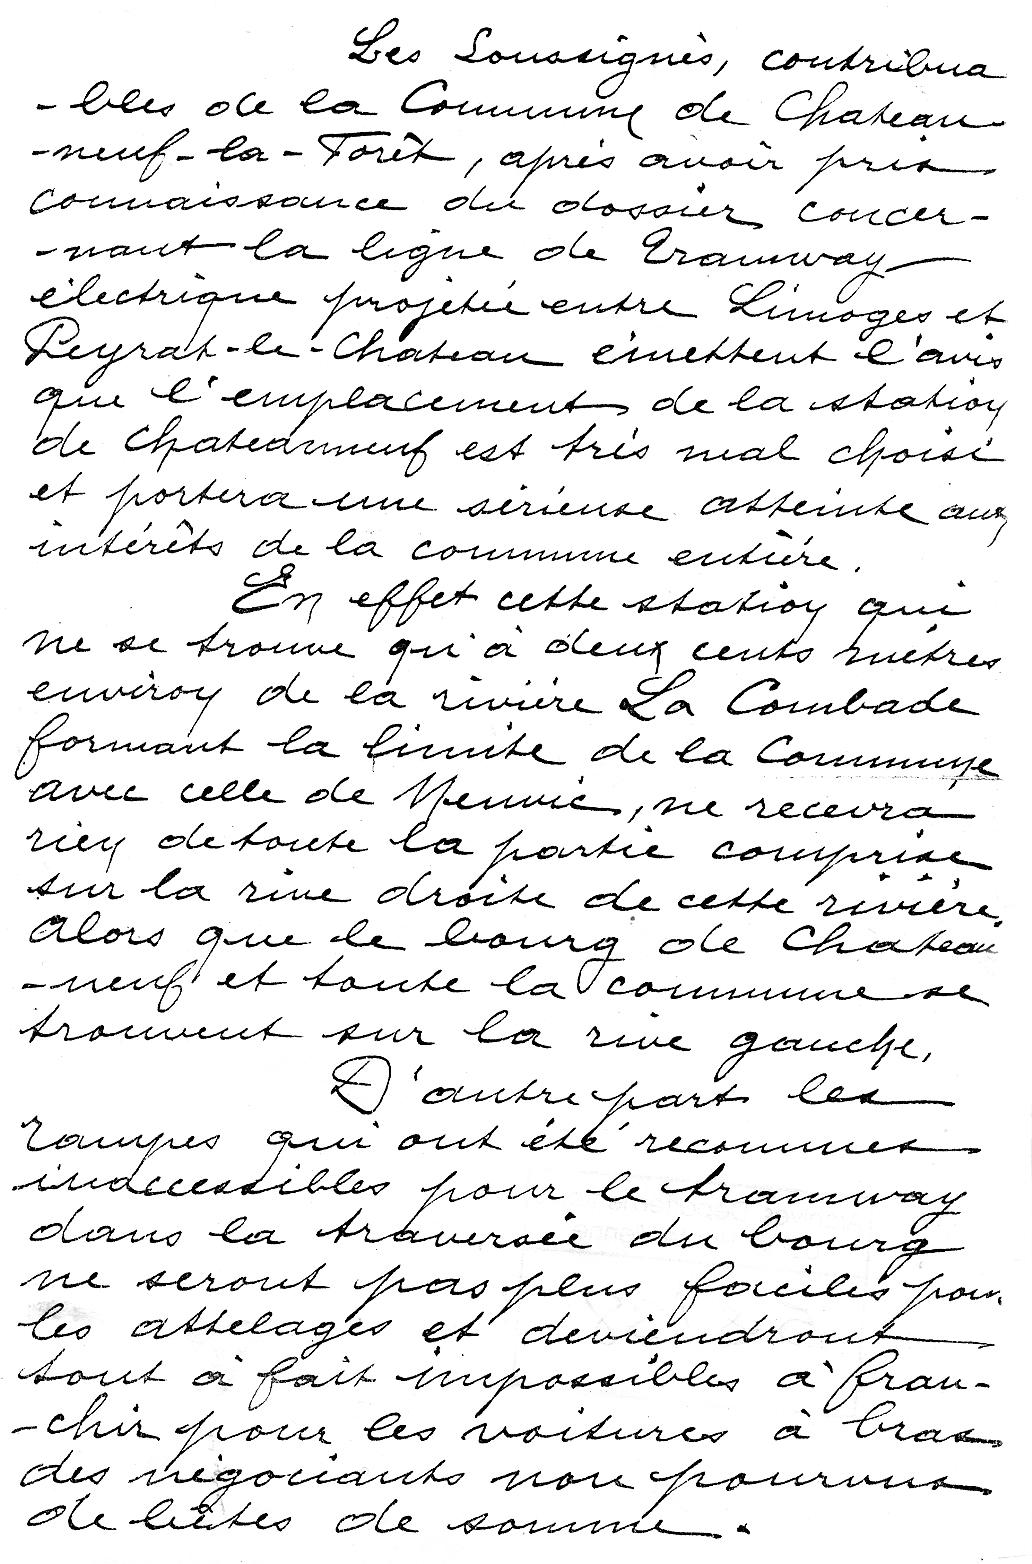 Les Soussignés, contribua
-bles de la Commune de Chateau-
-neuf-la-Forêt, après avoir pris
connaissance du dossier concer-
-nant la ligne de Tramway
électrique projetée entre Limoges et
Peyrat-le-Chateau émettent l'avis
que l'emplacement de la station
de Chateauneuf est très mal choisi
et portera une sérieuse atteinte aux
intérêts de la commune entière.
En effet cette station qui
ne se trouve qu'à deux cents mètres
environ de la rivière La Combade
formant la limite de la Commune
avec celle de Neuvic, ne recevra
rien de toute la partie comprise
sur la rive droite de cette rivière.
Alors que le bourg de Chateau
-neuf et toute la commune se
trouvent sur la rive gauche.
D'autre part les
rampes qui ont été reconnues
inaccessibles pour le tramway
dans la traversée du bourg
ne seront pas plus faciles pour
les attelages et deviendront
tout à fait impossibles à fran-
-chir pour les voitures à bras
des négociants non pourvus
de bêtes de somme.